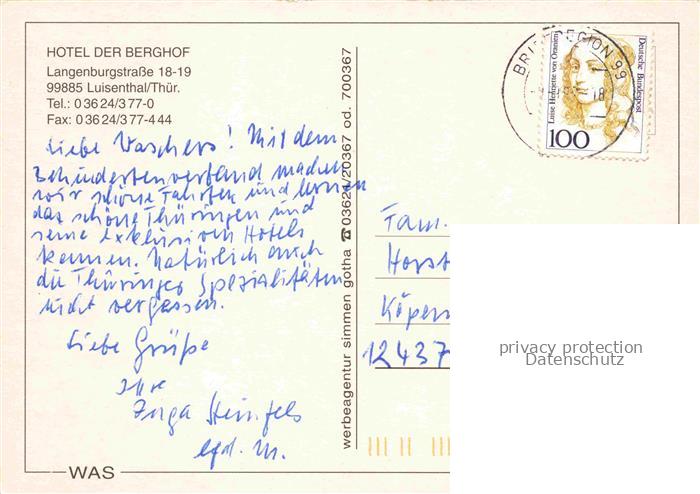 HOTEL DER BERGHOF
Langenburgstraße 18-19
99885 Luisenthal/Thür.
Tel.: 0 36 24/3 77-0
Fax: 0 36 24/3 77-4 44
Liebe Vaschers! Mit dem
Behindertenverband machen
wir schöne Fahrten und lernen
das schöne Thüringen und
seine exklusiven Hotels
kennen. Natürlich auch
die Thüringer Spezialitäten
nicht vergessen.
Liebe Grüße
Ihre
Inga
WAS
werbeagentur simmen gotha ☎ 03624/20367 od. 700367
BRIEFREGION 99
18
Luise Henriette von Oranien
Deutsche Bundespost
100
Fam.
Horst
Köpen
12437
privacy protection
Datenschutz